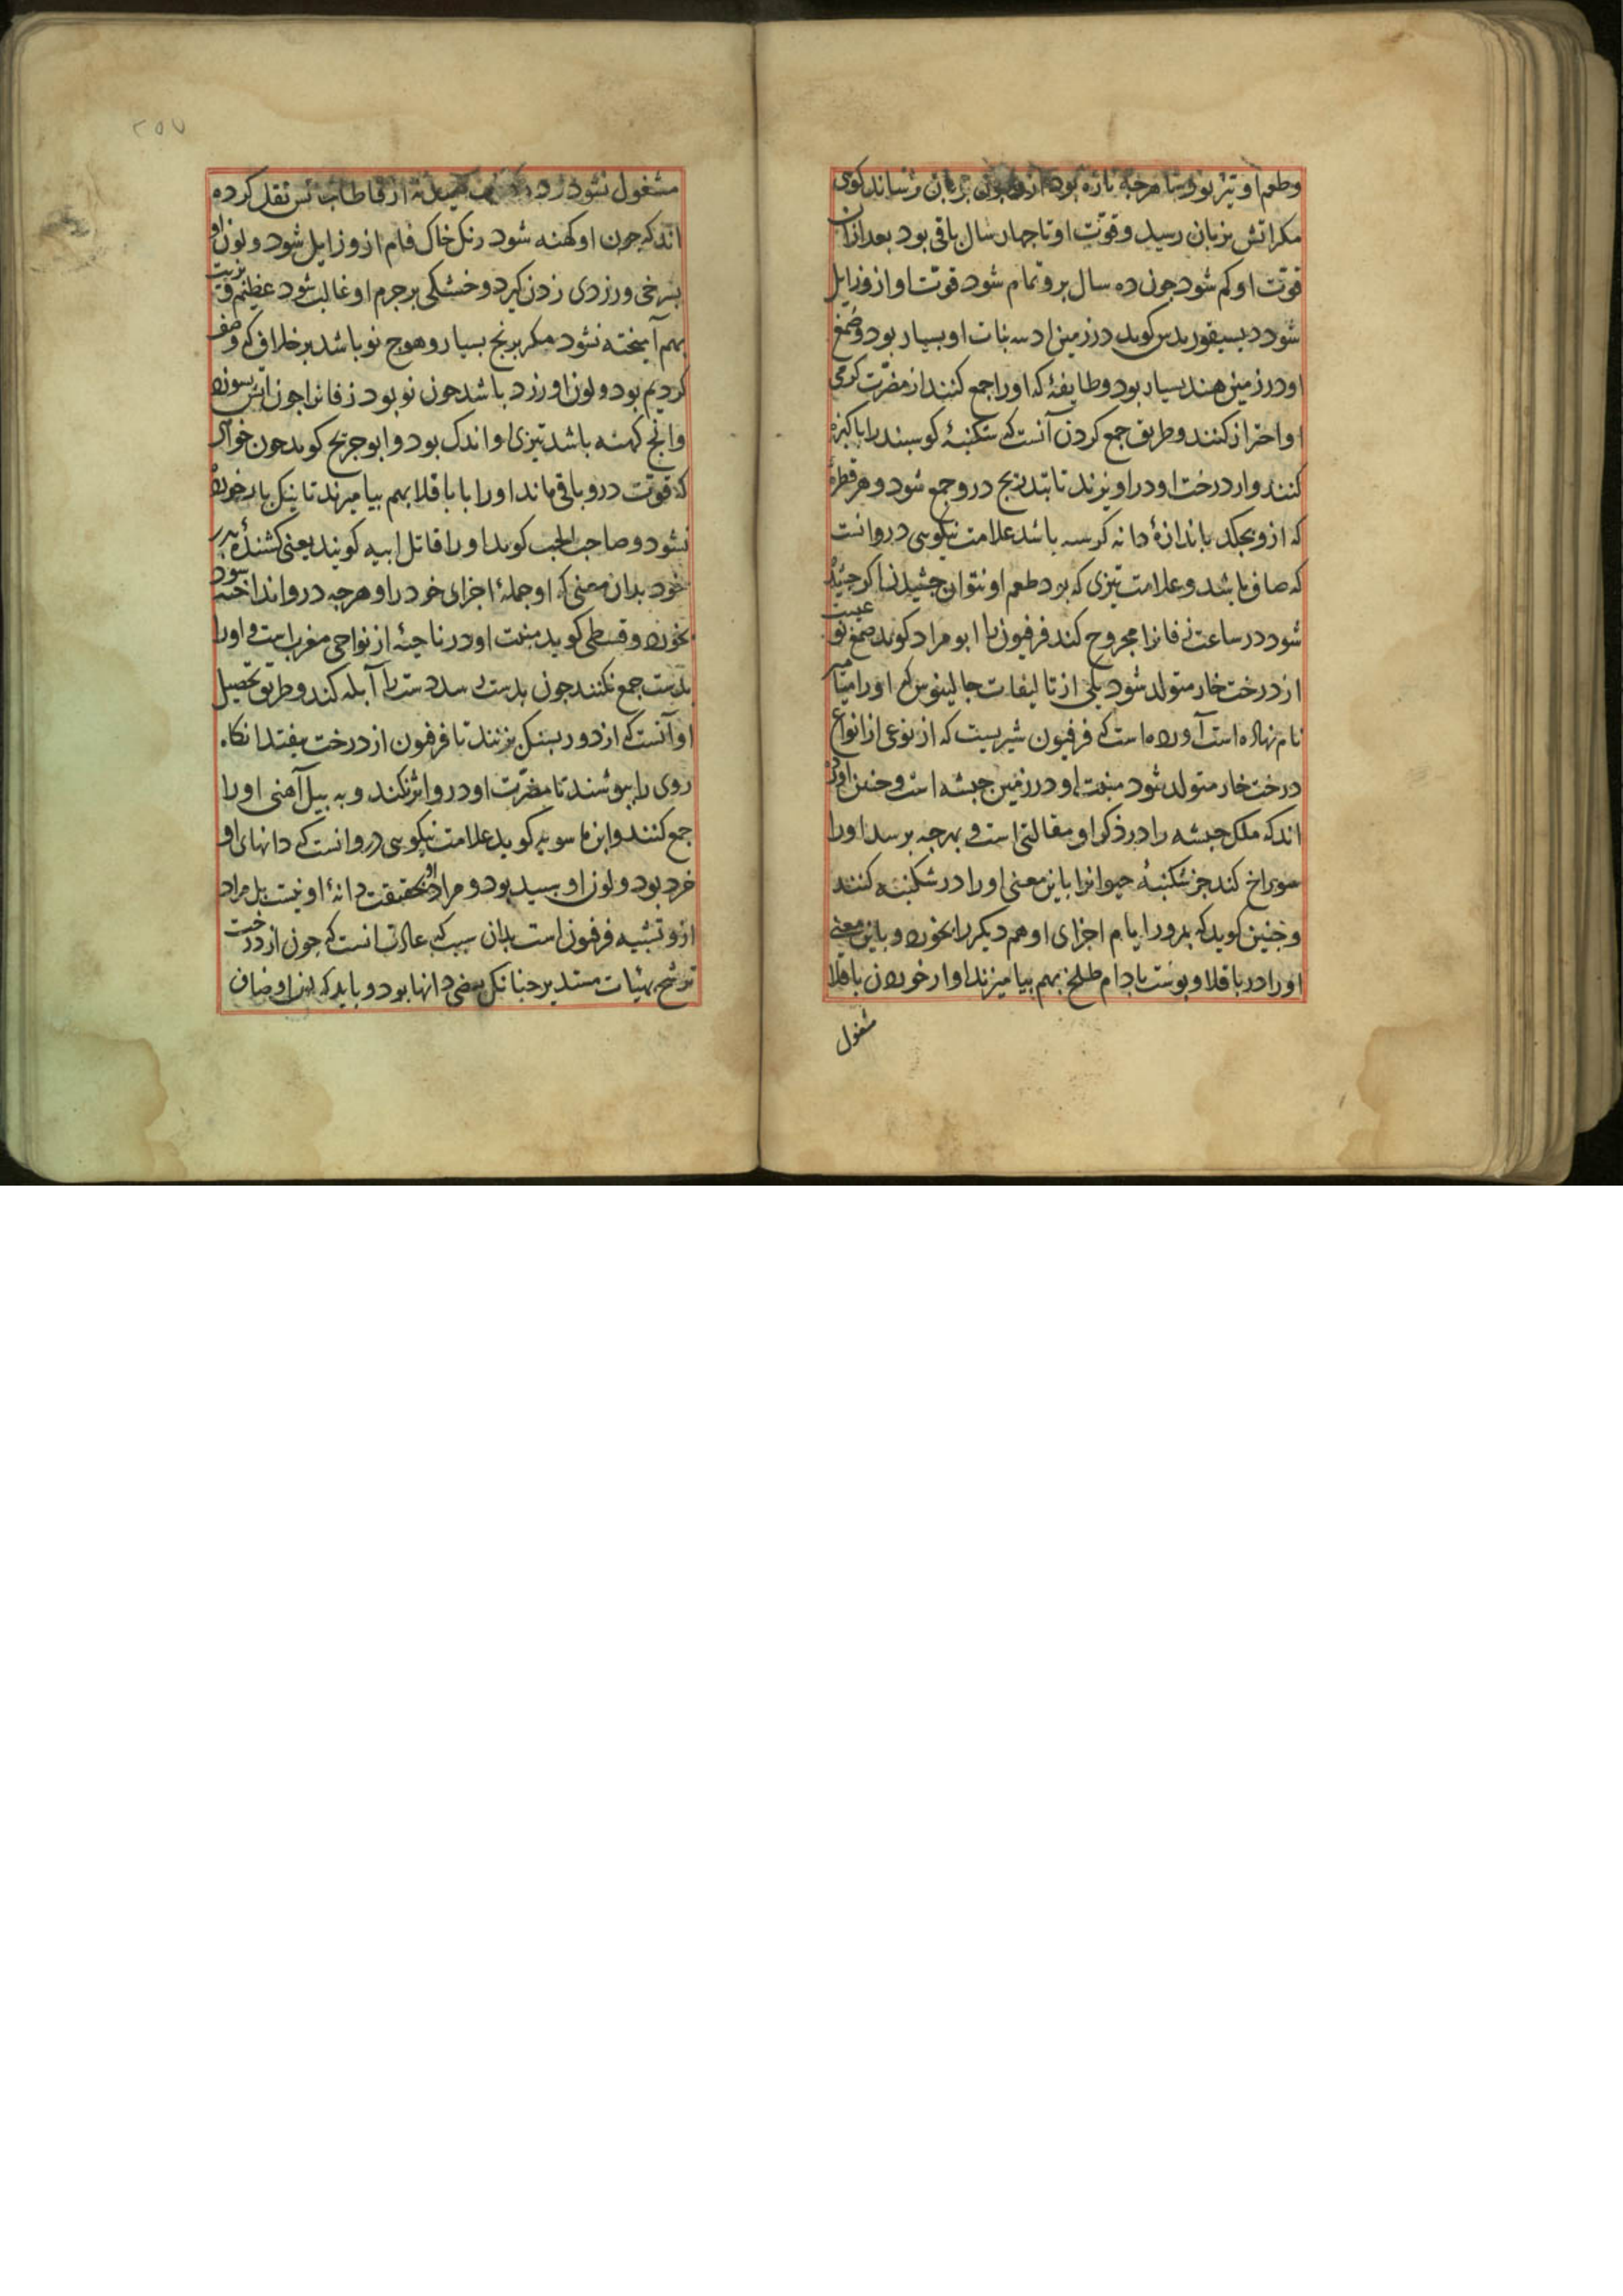 وطعم او تیز بود و تا هرچه تازه بود از و چون بزبان رساند کوی
مکر اتش بزبان رسید وقوّت او تا چهار سال باقی بود بعد ازان
قوّت او کم شود جون ده سال برو تمام شود قوّت او از و زایل
شود دیسیقوریدس کوید در زمین نبات او بسیار بود و صمغ
او در زمین هند بسیار بود و طایفهٔ که او را جمع کنند از مضرّت کرمی
او احتراز کنند و طریق جمع کردن آنست که شکنبهٔ کوسبند را باکیزه
کنند و از درخت او در اویزند تا بتدریج درو جمع شود و هر قطرهٔ
که ازو بجکد باندازهٔ دانه کرسنه باشد علامت نیکویی درو انست
که صافی باشد و علامت تیزی که بود طعم او نتوان جشیدن اکر جشیده
شود در ساعت زفانرا مجروح کند فرفیون را ابو مراد کوید صمغ
از درخت خار متولد شود یکی از تالیفات جالینوس که او را میامیر
نام نهاده است آورده است که فرفیون شیریست که از نوعی از انواع
درخت خار متولد شود منبت او در زمین حبشه است و جنین اورده
اند که ملک حبشه را در ذکر او مقالتی است و بهرجه برسد او را
سوراخ کند جز شکنبهٔ حیوانرا باین معنی او را در شکنبه کنند
و جنین کوید که بمرور ایام اجزای او هم دیکر را بخورد و باین معنی
او را در باقلا و بوست بادام طلخ بهم بیامیزند او از خوردن باقلا
مشغول
مشغول شود از قاطاجانس نقل کرده
اند که جون او کهنه شود رنک خاک فام از و زایل شود و لون او
بسرخی و زردی زدن کیرد و خشکی بر جرم او غالب شود عظیم و بزیت
بهم آمیخته نشود مکر برنج بسیار و هرج نو باشد بر خلاف که وصف
کردیم بود و لون او زرد باشد جون نو بود زفانرا جون اتش بسوزد
و انج کهنه باشد تیزی او اندک بود و ابو جریح کوید جون خواهی
که قوّت درو باقی ماند او را با باقلا بهم بیامیزند تا یکبار خورده
نشود و صاحب الحب کوید او را قاتل ابیه کویند یعنی کشندهٔ بدر
خود بدان معنی که او جملهٔ اجزای خود را و هرجه درو انداخته شود
بخورد و قسطی کوید منبت او در ناحیهٔ از نواحی مغرب است و او را
بدست جمع نکنند جون بدست رسد دست را آبله کند و طریق تحصیل
او آنست که از دور بسنک بزنند تا فرفیون از درخت بیفتد انکاه
روی را ببوشند تا مضرّت او درو اثر نکند و به بیل آهنی او را
جمع کنند و ابن ماسویه کوید علامت نیکویی درو انست که دانهای او
خرد بود و لون او سبید بود و مراد بحقیقت دانهٔ او نیست بل مراد
ازو تشبیه فرفیون است بدان سبب که عادت انست که جون از درخت
ترشح بهیات مستدیر جنانکه بعضی دانها بود و باید که این اوصاف